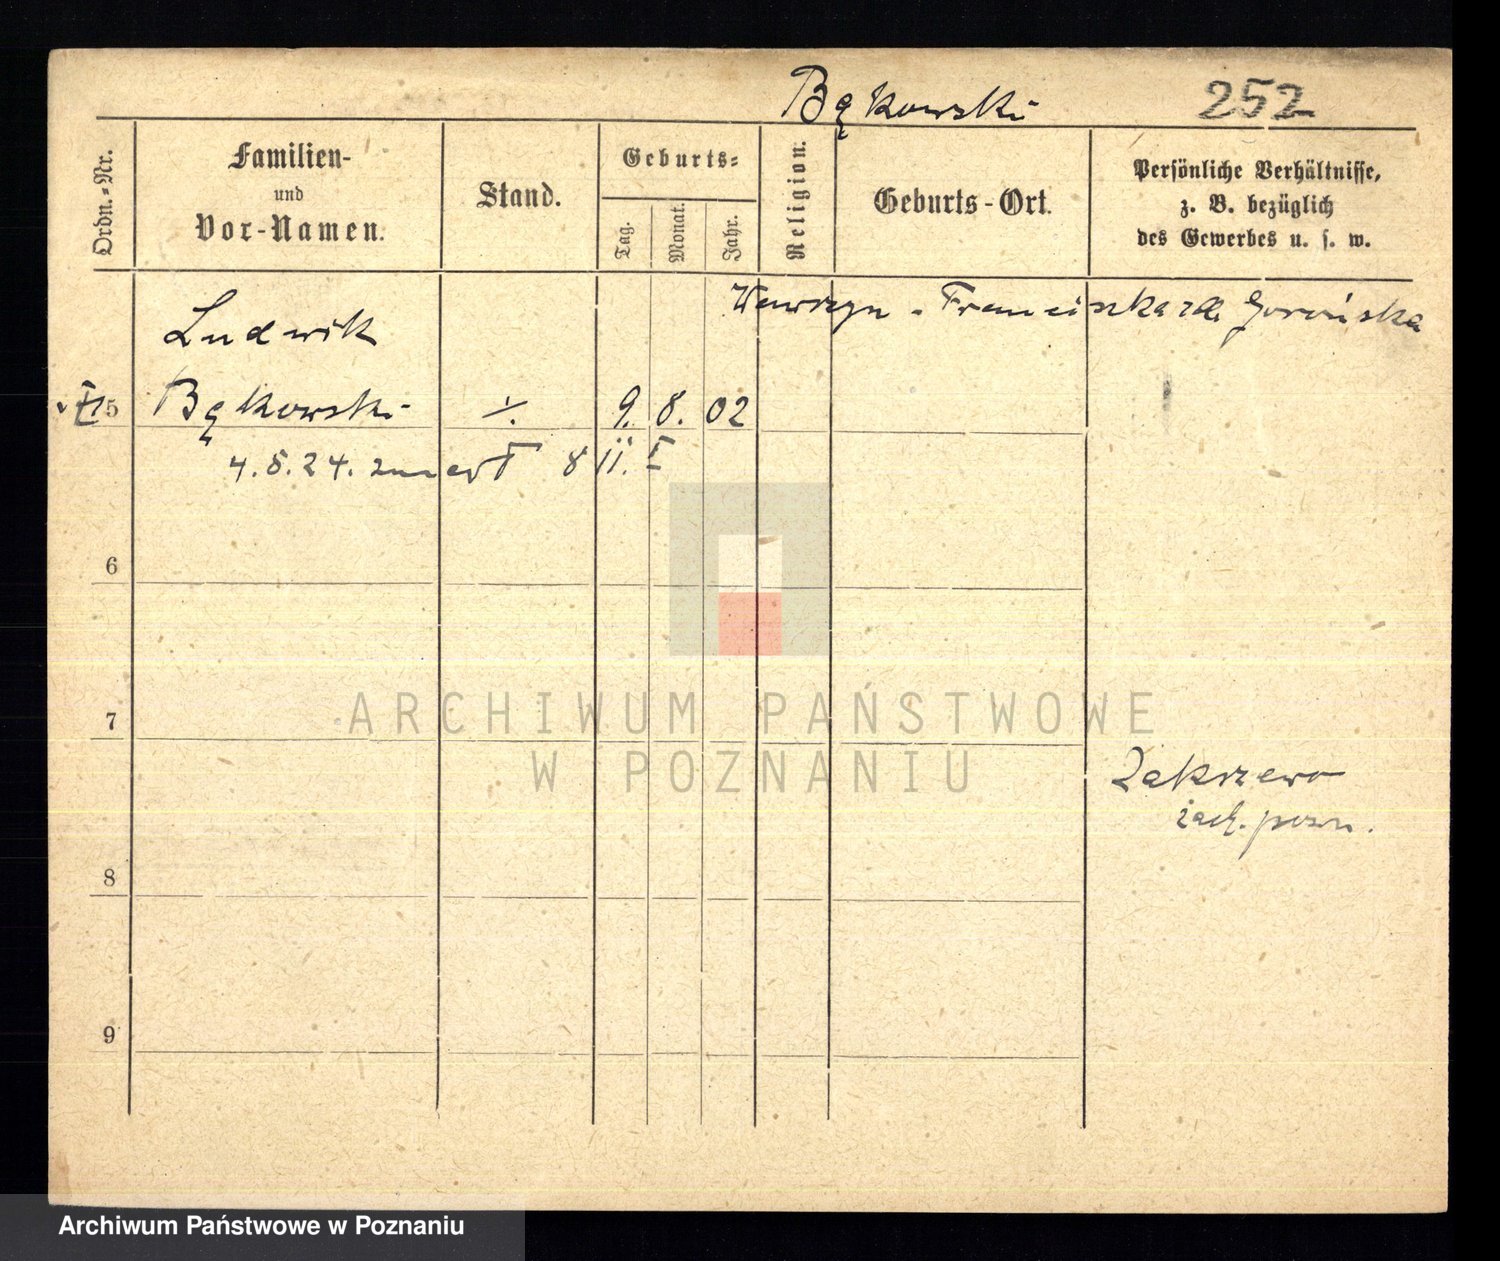 Bąkowski 252
Ordn.-Nr.
Familien-
und
Vor-Namen.
Stand.
Geburts-
Tag.
Monat.
Jahr.
Religion.
Geburts-Ort.
Persönliche Verhältnisse,
z. B. bezüglich
des Gewerbes u. s. w.
Wawrzyn - Franciszka zd. Gorońska
Ludwik
5 Bąkowski ·/. 9. 8. 02
4.5.24. zmarł 8 II. I
6
7
Zakrzewo
zach. pozn.
8
9
ARCHIWUM PAŃSTWOWE
W POZNANIU
Archiwum Państwowe w Poznaniu